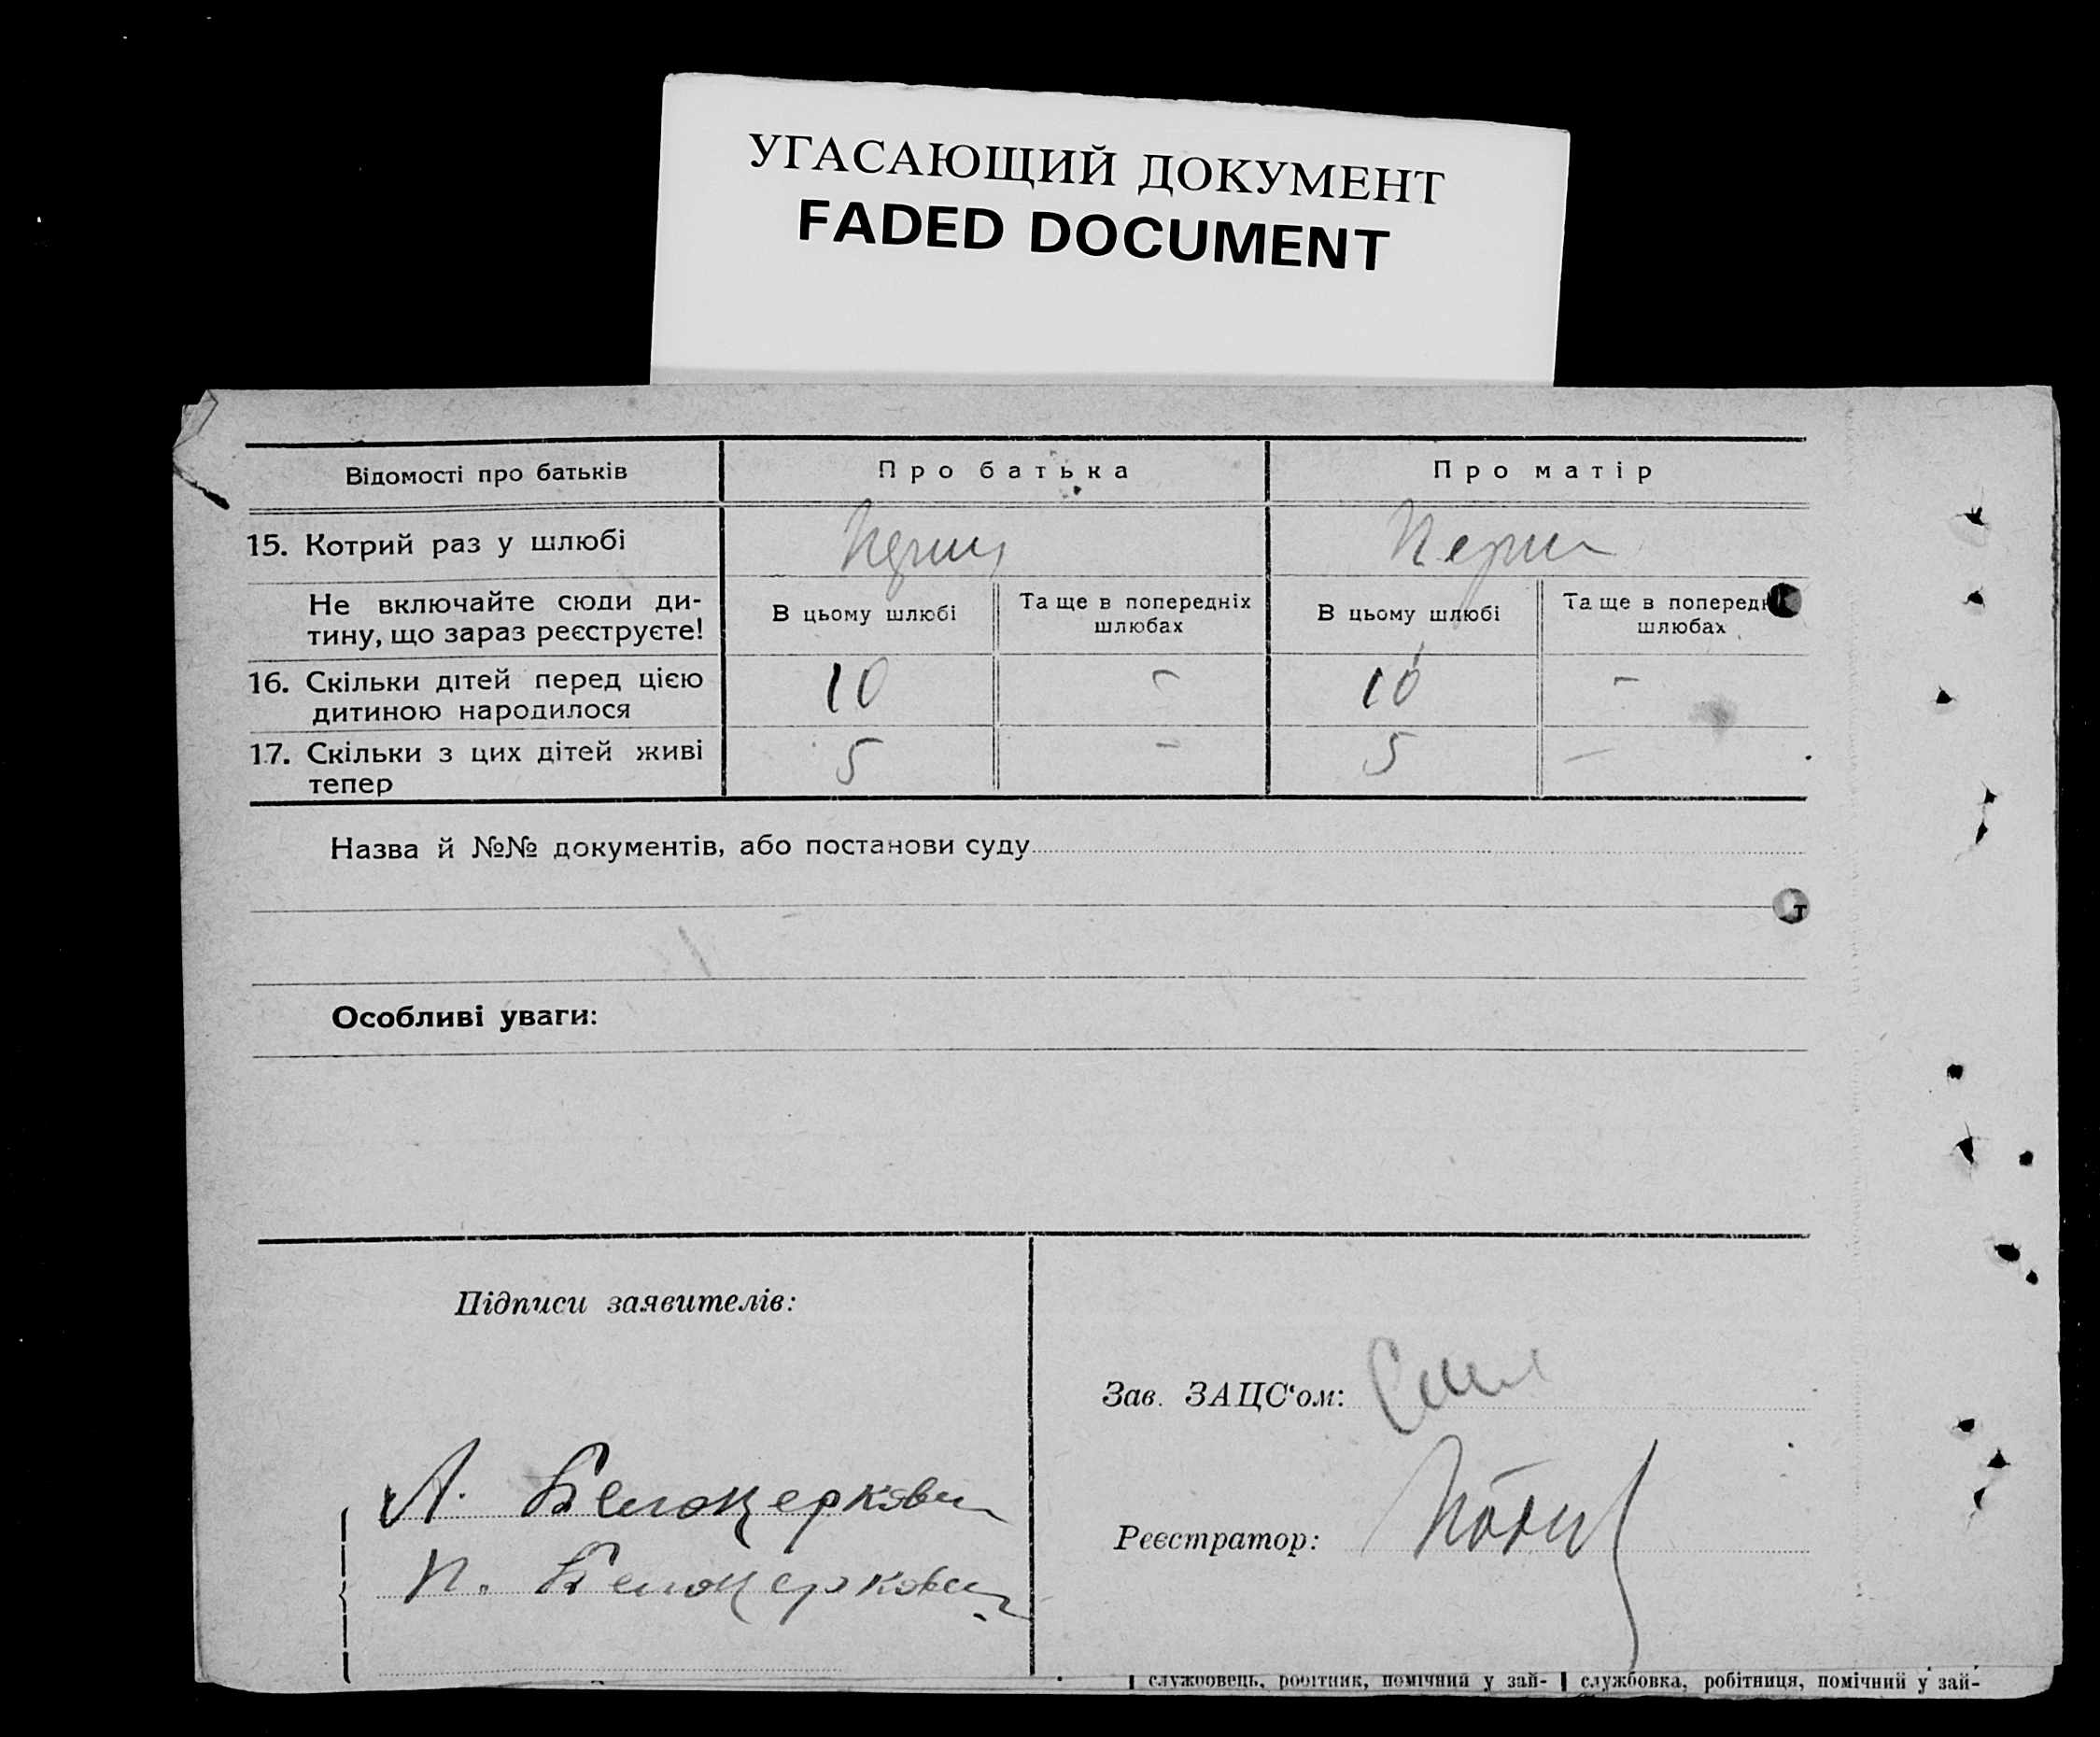 УГАСАЮЩИЙ ДОКУМЕНТ
FADED DOCUMENT
Відомості про батьків
Про батька
Про матір
15. Котрий раз у шлюбі
Не включайте сюди ди-
тину, що зараз реєструєте!
В цьому шлюбі
Та ще в попередніх
шлюбах
В цьому шлюбі
Та ще в
шлюбах
16. Скільки дітей перед цією
дитиною народилося
10
-
10
-
17. Скільки з цих дітей живі
тепер
5
-
5
-
Назва й №№ документів, або постанови суду
Особливі уваги:
Підписи заявителів:
А.
П.
Зав. ЗАЦС‘ом:
Реєстратор:
службовець, робітник, помічний у зай-
службовка, робітниця, помічний у зай-